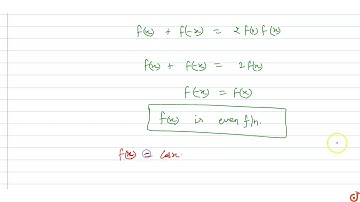 f(x) + f(-x) = 2 f(0) f(x)
f(x) + f(-x) = 2f(x)
f(-x) = f(x)
f(x) is even f/n.
f(x) = cosx.